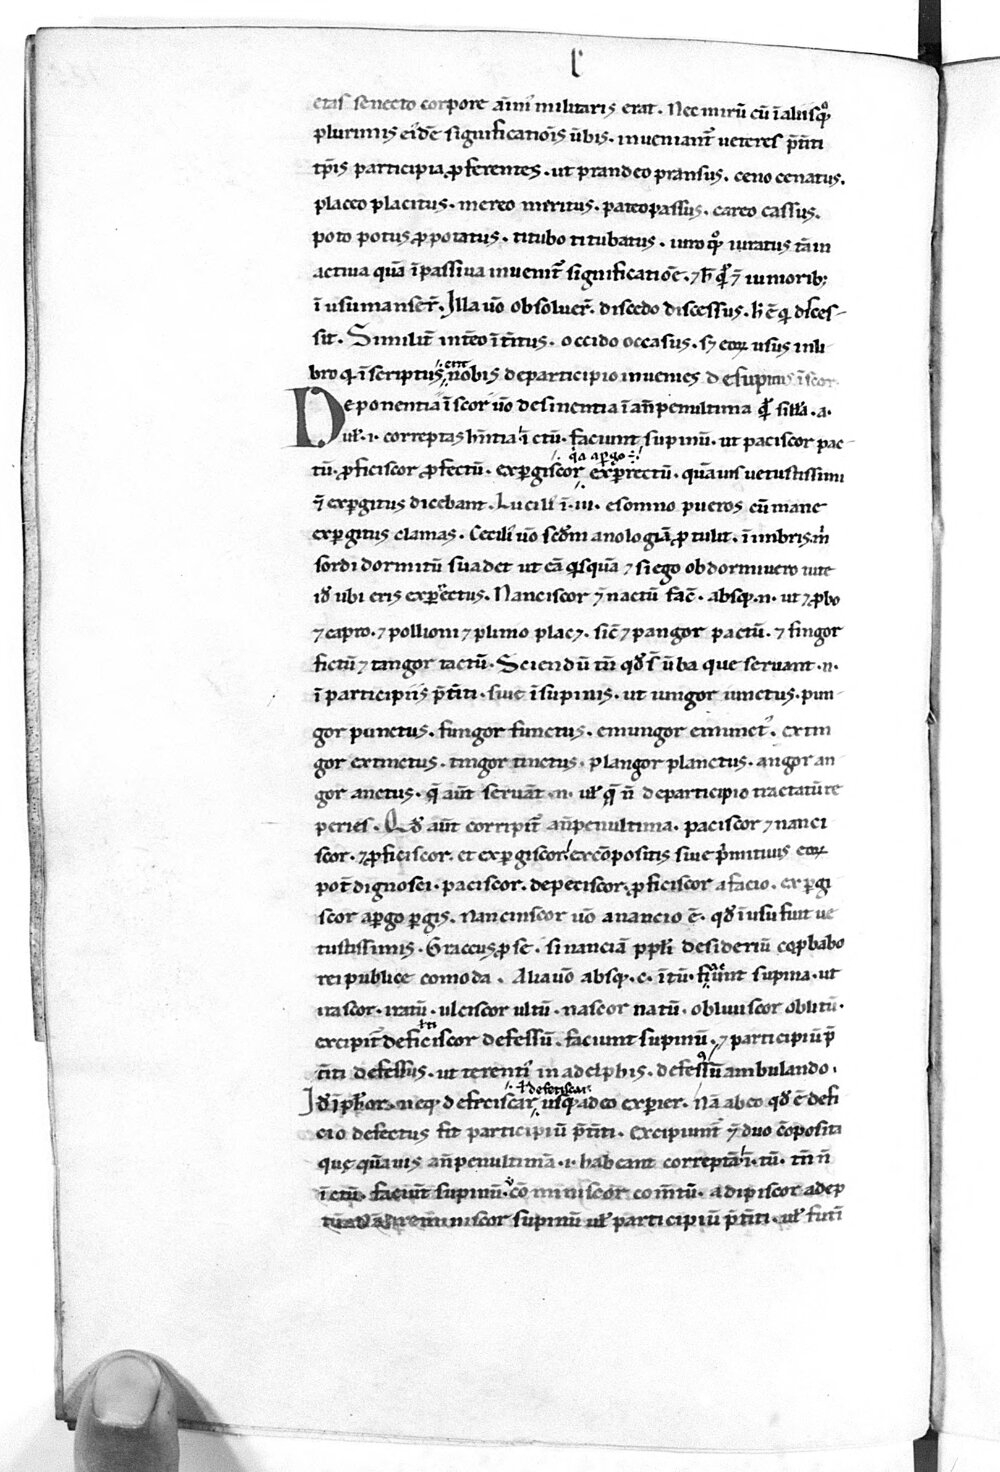 l'
etas senecto corpore aīmi militaris erat. Nec mirū cū ī aliis q̊ꝫ
plurimis eidē significatiōis ūbis. inueniant᷑ ueteres p̄t̄iti
tp̄is participia ꝓferentes. ut prandeo pransus. ceno cenatus.
placeo placitus. mereo meritus. pateo passus. careo cassus.
poto potus ꝓ potatus. titubo titubatus. iuro q̊ꝫ iuratus tā in
actiua quā ī passiua inuenit᷑ significatiōe. ⁊ h̄ qͥdē ī iuniorib;
ī usu manser̄. Illa ūo obsoluer̄. discedo discessus. h̄ ē qͥ disces-
sit. Similit᷑ inteo īt̄itus. occido occasus. sꝫ eoꝝ usus in li-
bro qͥ īscriptus ent nobis de participio inuenies de supinis ī scor.
Deponentia ī scor ūo desinentia ī an̄penultima qͥdē sill'a .a.
uł .i. correptas hn̄tia ī ctū. faciunt supinū. ut paciscor pac-
tū. ꝓficiscor ꝓfectū. exꝑgiscor exꝑrectū. quāuis uetustissimi
⁊ exꝑgitus dicebant. Lucili' ī .iii. e somno pueros cū mane
exꝑgitus clamas. Cecili' ūo scd̄m anologiā ꝓtulit. ī imbris
sordi dormitū suadet ut eā qͥsquā ⁊ si ego obdormiuero tute
id' ubi eris exꝑrectus. Nanciscor ⁊ nactū fac̄. absqꝫ .n. ut ⁊ ꝓbo
⁊ capro. ⁊ pollioni ⁊ plinio placꝫ. sic̄ ⁊ pangor pactū. ⁊ fingor
fictū ⁊ tangor tactū. Sciendū tū qd' s̄ ūba que seruant .n.
ī participiis p̄t̄iti. siue ī supinis. ut iungor iunctus. pun-
gor punctus. fungor functus. emungor emunct'. extin
gor extinctus. tingor tinctus. plangor planctus. angor an
gor anctus. q̄ aūt seruāt .n. uł q̄ n̄ de participio tractatū re
peries. Qd' aūt corripit᷑ an̄penultima. paciscor ⁊ nanci
scor. ⁊ ꝓficiscor. et exꝑgiscor. ex cōpositis siue p̄mitiuis eoꝝ
pot̄ dignosci. paciscor. depeciscor. ꝓficiscor a facio. exꝑgi
scor a ꝑgo ꝑgis. nanciscor ūo a nancio ē. qd' ī usu fuit ue
tustissimis. Graccus ꝓ se. si nanciā ppl'i desideriū coꝓbabo
rei publice comoda. Alia ūo absqꝫ .c. ī tū. fiunt supina. ut
irascor. iratū. ulciscor ultū. nascor natū. obliuiscor oblitū.
excipit᷑ deficiscor defessū. faciunt supinū. ⁊ participiū p̄
t̄iti defessus. ut terenti' in adelphis. defessꝰ sū ambulando.
Id' ī phor. neqꝫ defeciscar usqꝫ adeo exꝑier. Nā ab eo qd' ē defi
cio defectus fit participiū p̄t̄iti. Excipiunt᷑ ⁊ duo cōposita
que quāuis an̄penultimā .i. habeant correptā ī tū. tn̄ n̄
ī ctū. faciūt supinū. cōminiscor com̄tū. adipiscor adep
reminiscor supinū uł participiū p̄t̄iti. uł futuri